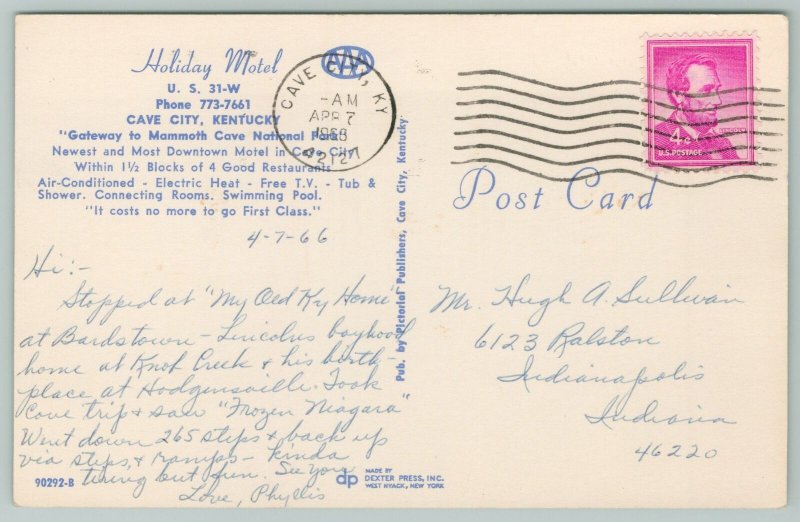 Holiday Motel
AAA
U. S. 31-W
Phone 773-7661
CAVE CITY, KENTUCKY
"Gateway to Mammoth Cave National Park"
Newest and Most Downtown Motel in Cave City
Within 1½ Blocks of 4 Good Restaurants
Air-Conditioned - Electric Heat - Free T.V. - Tub &
Shower. Connecting Rooms. Swimming Pool.
"It costs no more to go First Class."
CAVE CITY, KY
-AM
APR 7
1966
42127
4¢
LINCOLN
U.S. POSTAGE
Post Card
4-7-66
Hi:-
Stopped at "My Old Ky Home"
at Bardstown - Lincolns boyhood
home at Knob Creek & his birth-
place at Hodgensville. Took
Cave trip & saw "Frozen Niagara"
Went down 265 steps & back up
via steps, & ramps - kinda
tiring but fun. See you
Love, Phyllis
Mr. Hugh A. Sullivan
6123 Ralston
Indianapolis
Indiana
46220
Pub. by Pictorial Publishers, Cave City, Kentucky
90292-B
dp
MADE BY
DEXTER PRESS, INC.
WEST NYACK, NEW YORK